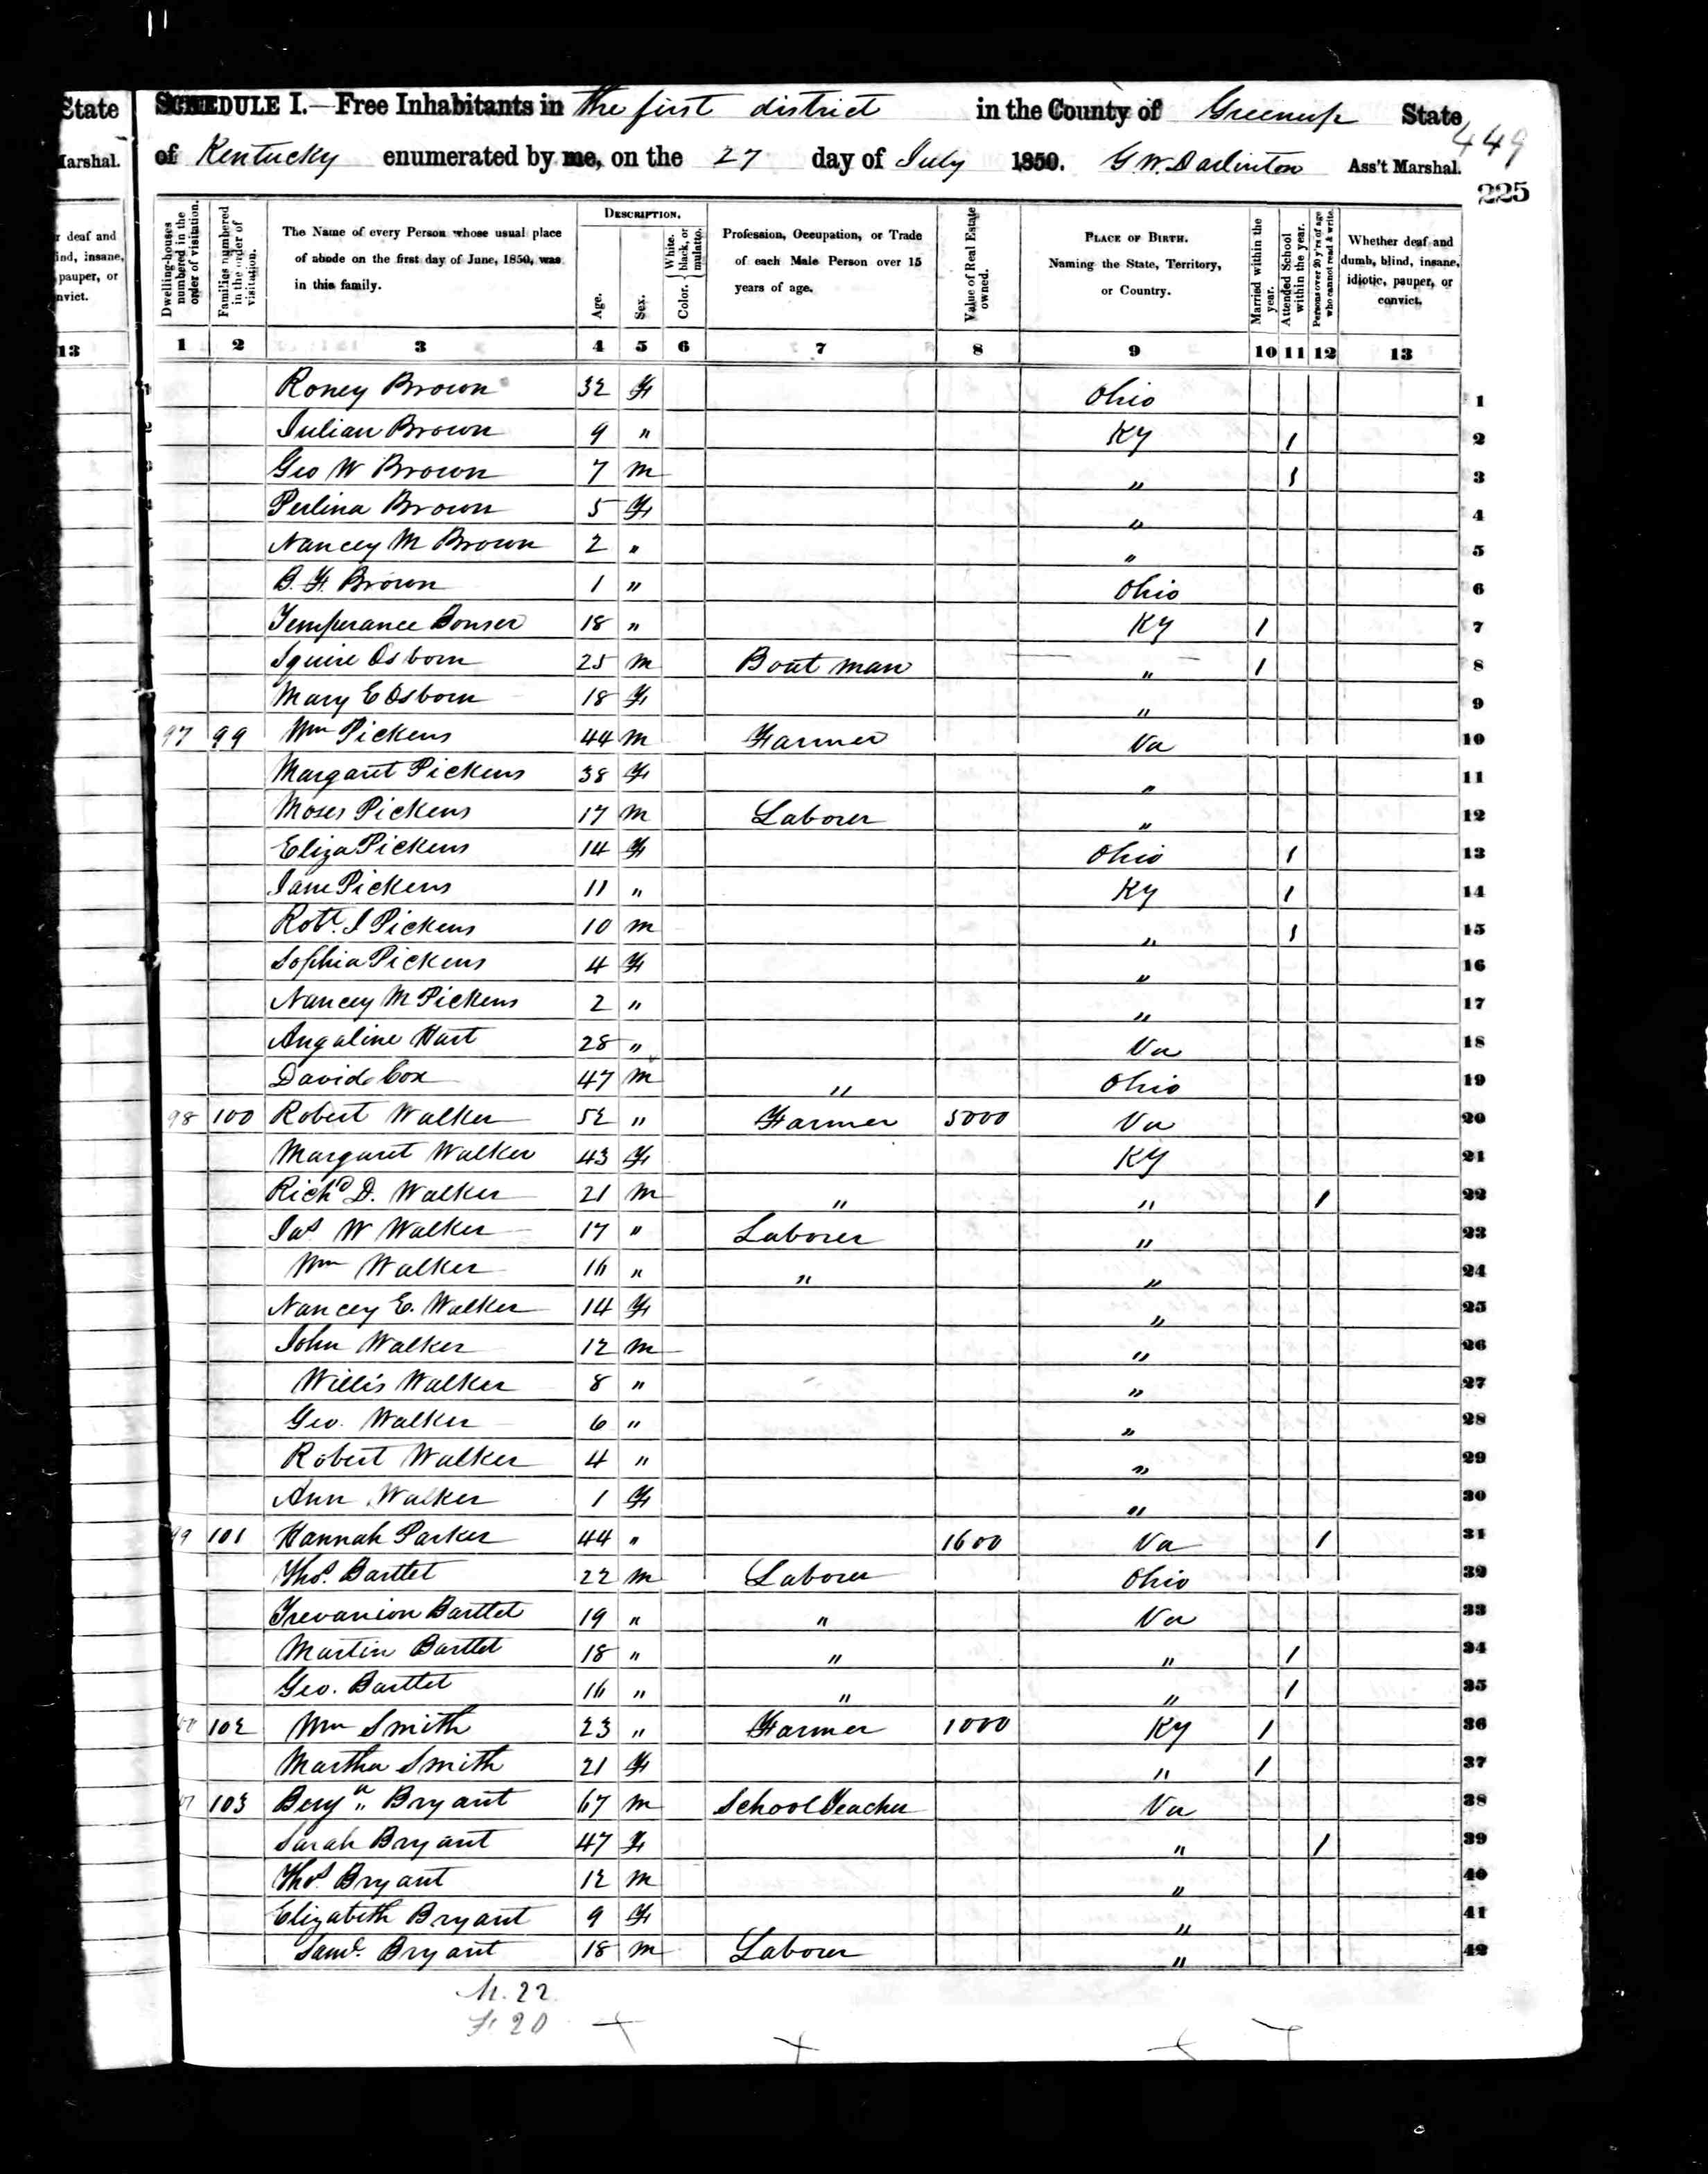 State
Marshal.
r deaf and
ind, insane,
pauper, or
nvict.
13
SCHEDULE I.—Free Inhabitants in the first district in the County of Greenup State
of Kentucky enumerated by me, on the 27 day of July 1850. G. W. Darlinton Ass't Marshal.
449
225
Dwelling-houses numbered in the order of visitation.
Families numbered in the order of visitation.
The Name of every Person whose usual place of abode on the first day of June, 1850, was in this family.
Description.
Age.
Sex.
Color. White, black, or mulatto.
Profession, Occupation, or Trade of each Male Person over 15 years of age.
Value of Real Estate owned.
Place of Birth. Naming the State, Territory, or Country.
Married within the year.
Attended School within the year.
Persons over 20 y'rs of age who cannot read & write.
Whether deaf and dumb, blind, insane, idiotic, pauper, or convict.
1 2 3 4 5 6 7 8 9 10 11 12 13
Roney Brown 32 F Ohio 1
Julian Brown 9 " Ky 1 2
Geo W Brown 7 M " 1 3
Perlina Brown 5 F " 4
Nancey M Brown 2 " " 5
B. F. Brown 1 " Ohio 6
Temperance Bonser 18 " Ky 1 7
Squire Osborn 25 M Boat man " 1 8
Mary E Osborn 18 F " 9
97 99 Wm Pickens 44 M Farmer Va 10
Margaret Pickens 38 F " 11
Moses Pickens 17 M Laborer " 12
Eliza Pickens 14 F Ohio 1 13
Jane Pickens 11 " Ky 1 14
Robt. J Pickens 10 M " 1 15
Sophia Pickens 4 F " 16
Nancey M Pickens 2 " " 17
Angaline Hart 28 " Va 18
David Cox 47 M " Ohio 19
98 100 Robert Walker 52 " Farmer 5000 Va 20
Margaret Walker 43 F Ky 21
Richd D. Walker 21 M " " 1 22
Jas W Walker 17 " Laborer " 23
Wm Walker 16 " " " 24
Nancey E. Walker 14 F " 25
John Walker 12 M " 26
Willis Walker 8 " " 27
Geo. Walker 6 " " 28
Robert Walker 4 " " 29
Ann Walker 1 F " 30
99 101 Hannah Parker 44 " 1600 Va 1 31
Thos. Bartlet 22 M Laborer Ohio 32
Trevanion Bartlet 19 " " Va 33
Martin Bartlet 18 " " " 1 34
Geo. Bartlet 16 " " " 1 35
102 Wm Smith 23 " Farmer 1000 Ky 1 36
Martha Smith 21 F " 1 37
103 Benjn Bryant 67 M School Teacher Va 38
Sarah Bryant 47 F " 1 39
Thos. Bryant 12 M " 40
Elizabeth Bryant 9 F " 41
Saml. Bryant 18 M Laborer " 42
M. 22
F. 20